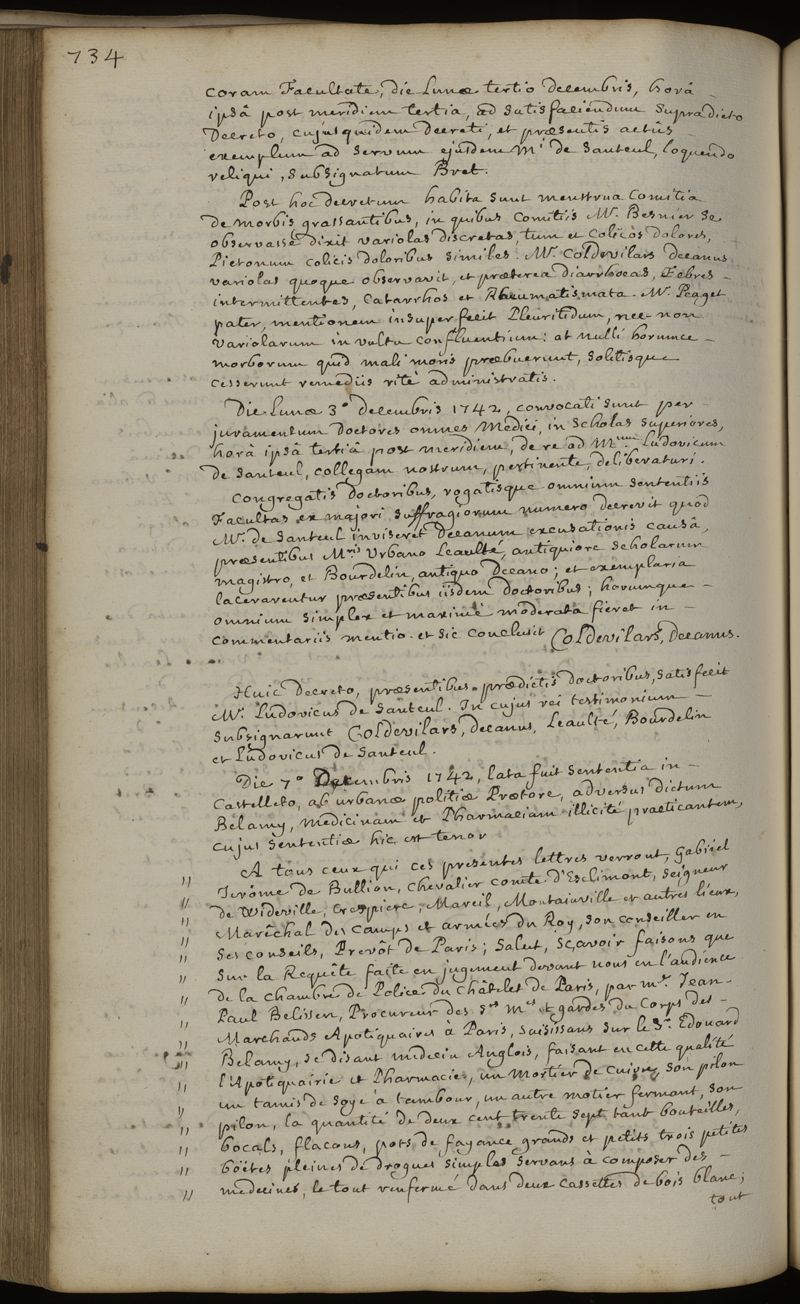 734
coram Facultate, die Lunæ tertio decembris, horâ -
ipsâ post meridiem tertia, ad satisfaciendum supradicto
Decreto, cujusquidem decreti, et præsentis actûs -
exemplum ad servum ejusdem Mi. de Santeul, loquendo
reliqui, subsignatum Bret.
Post hoc decretum habita sunt menstrua Comitia
de morbis grassantibus, in quibus Comitiis Mr. Besnier se
observasse dixit variolas discretas, tum et Colicos dolores,
Pictonum colicis doloribus similes. Mr. Coldevilars decanus
variolas quoque observavit, et præterea diarrhoeas, Febres -
intermittentes, Catarrhos et Rheumatismata. Mr. Peaget
pater, mentionem insuper fecit Pleuritidum, nec non
variolarum in vultu confluentium: at nulli horunce -
morborum quid mali moris præbuerunt, solitisque
cesserunt remediis ritè administratis.
Die Lunæ 3a. decembris 1742, convocati sunt per
juramentum Doctores omnes Medici, in scholas superiores,
horâ ipsâ tertiâ post meridiem, de re ad Mum. Ludovicum
de Santeul, collegam nostrum, pertinente, deliberaturi.
Congregatis doctoribus, rogatisque omnium sententiis
Facultas ex majori suffragiorum numero decrevit quod
Mr. de Santeul inviseret Decanum excusationis causâ,
præsentibus Mris Urbano Leaulté, antiquiore scholarum
magistro, et Bourdelin, antiquo Decano; et exemplaria
lacerarentur præsentibus iisdem doctoribus; horumque -
omnium simplex et maximè moderata fieret in -
Commentariis mentio. et sic conclusit Coldevilars, Decanus.
Huic Decreto, præsentibus prædictis doctoribus, satisfecit
Mr. Ludovicus de Santeul. In cujus rei testimonium -
subsignarunt Coldevilars, decanus, Leaulté, Bourdelin
et Ludovicus de Santeul.
Die 7a. Decembris 1742, lata fuit sententia in -
Castelleto, ab urbanæ politiæ Prætore, adversus dictum
Belamy, medicinam et Pharmaciam illicitè practicantem,
cujus sententiæ hic est tenor
" A tous ceux qui ces presentes lettres verront, Gabriel
" Jerôme de Bullion, chevalier comte d'Esclimont, seigneur
" de Wideville, Crespiere, Mareil, Montainville et autres lieux,
" Marêchal des Camps et armées du Roy, son conseiller en
" ses conseils, Prevôt de Paris; Salut, sçavoir faisons que
" sur la Requête faite en jugement devant nous en l'audience
" de la chambre de Police du Châtelet de Paris, par me. Jean -
Paul Belissen, Procureur des Srs Mes et gardes du Corps des -
" Marchands Apotiquaires à Paris, saisissans sur le Sr. Edouard
" Belamy, se disant medecin Anglois, faisant en cette qualité
" l'Apotiquairie et Pharmacie, un mortier de cuivre, son pilon
" un tamis de soye à tambour, un autre motier fermant, son
" pilon, la quantité de deux cent trente sept tant bouteilles,
" bocals, flacons, pots de fayance grands et petits trois petites
" boëtes pleines de drogues simples servans à composer des -
" medecines, le tout renfermé dans deux cassettes de bois blanc;
tout